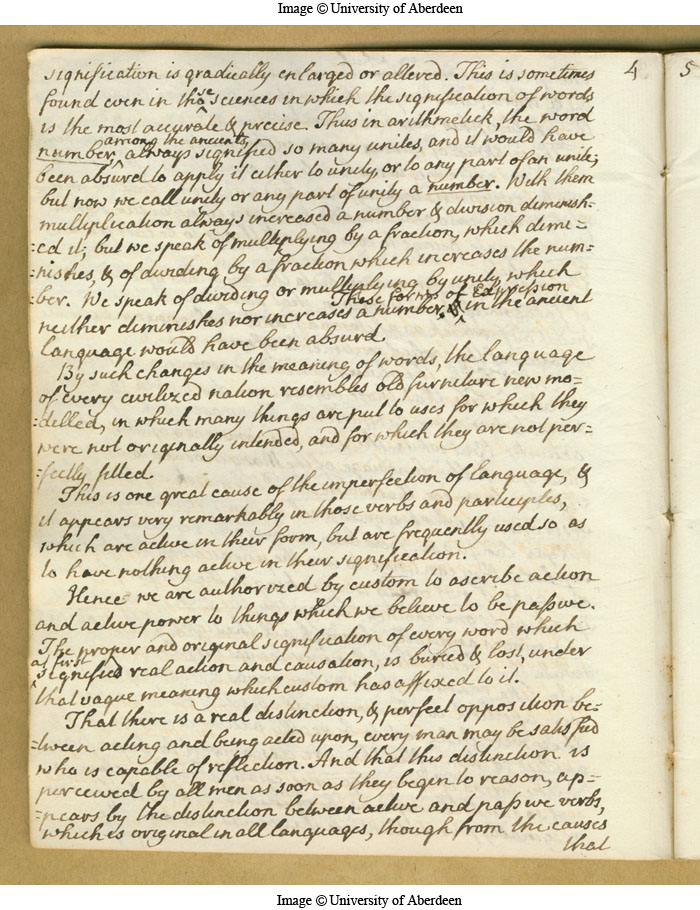 Image © University of Aberdeen
4
5
signification is gradually enlarged or altered. This is sometimes
found even in those sciences in which the signification of words
is the most accurate & precise. Thus in arithmetick, the word
among the ancients
number, always signified so many unites, and it would have
been absurd to apply it either to unity, or to any part of an unite;
but now we call unity or any part of unity a number. With them
multiplication always increased a number & division diminish-
=ed it; but we speak of multiplying by a fraction, which dimi=
=nishes, & of dividing by a fraction which increases the num=
=ber. We speak of dividing or multiplying by unity, which
These forms of Expression
neither diminishes nor increases a number, in the ancient
language would have been absurd.
By such changes in the meaning of words, the language
of every civilized nation resembles old furniture new mo=
=delled, in which many things are put to uses for which they
were not originally intended, and for which they are not per=
=fectly fitted.
This is one great cause of the imperfection of language, &
it appears very remarkably in those verbs and participles,
which are active in their form, but are frequently used so as
to have nothing active in their signification.
Hence we are authorized by custom to ascribe action
and active power to things which we believe to be passive.
The proper and original signification of every word which
at first
signified real action and causation, is buried & lost, under
that vague meaning which custom has affixed to it.
That there is a real distinction, & perfect opposition be=
=tween acting and being acted upon, every man may be satisfied
who is capable of reflection. And that this distinction is
perceived by all men as soon as they begin to reason, ap=
=pears by the distinction between active and passive verbs,
which is original in all languages, though from the causes
that
Image © University of Aberdeen